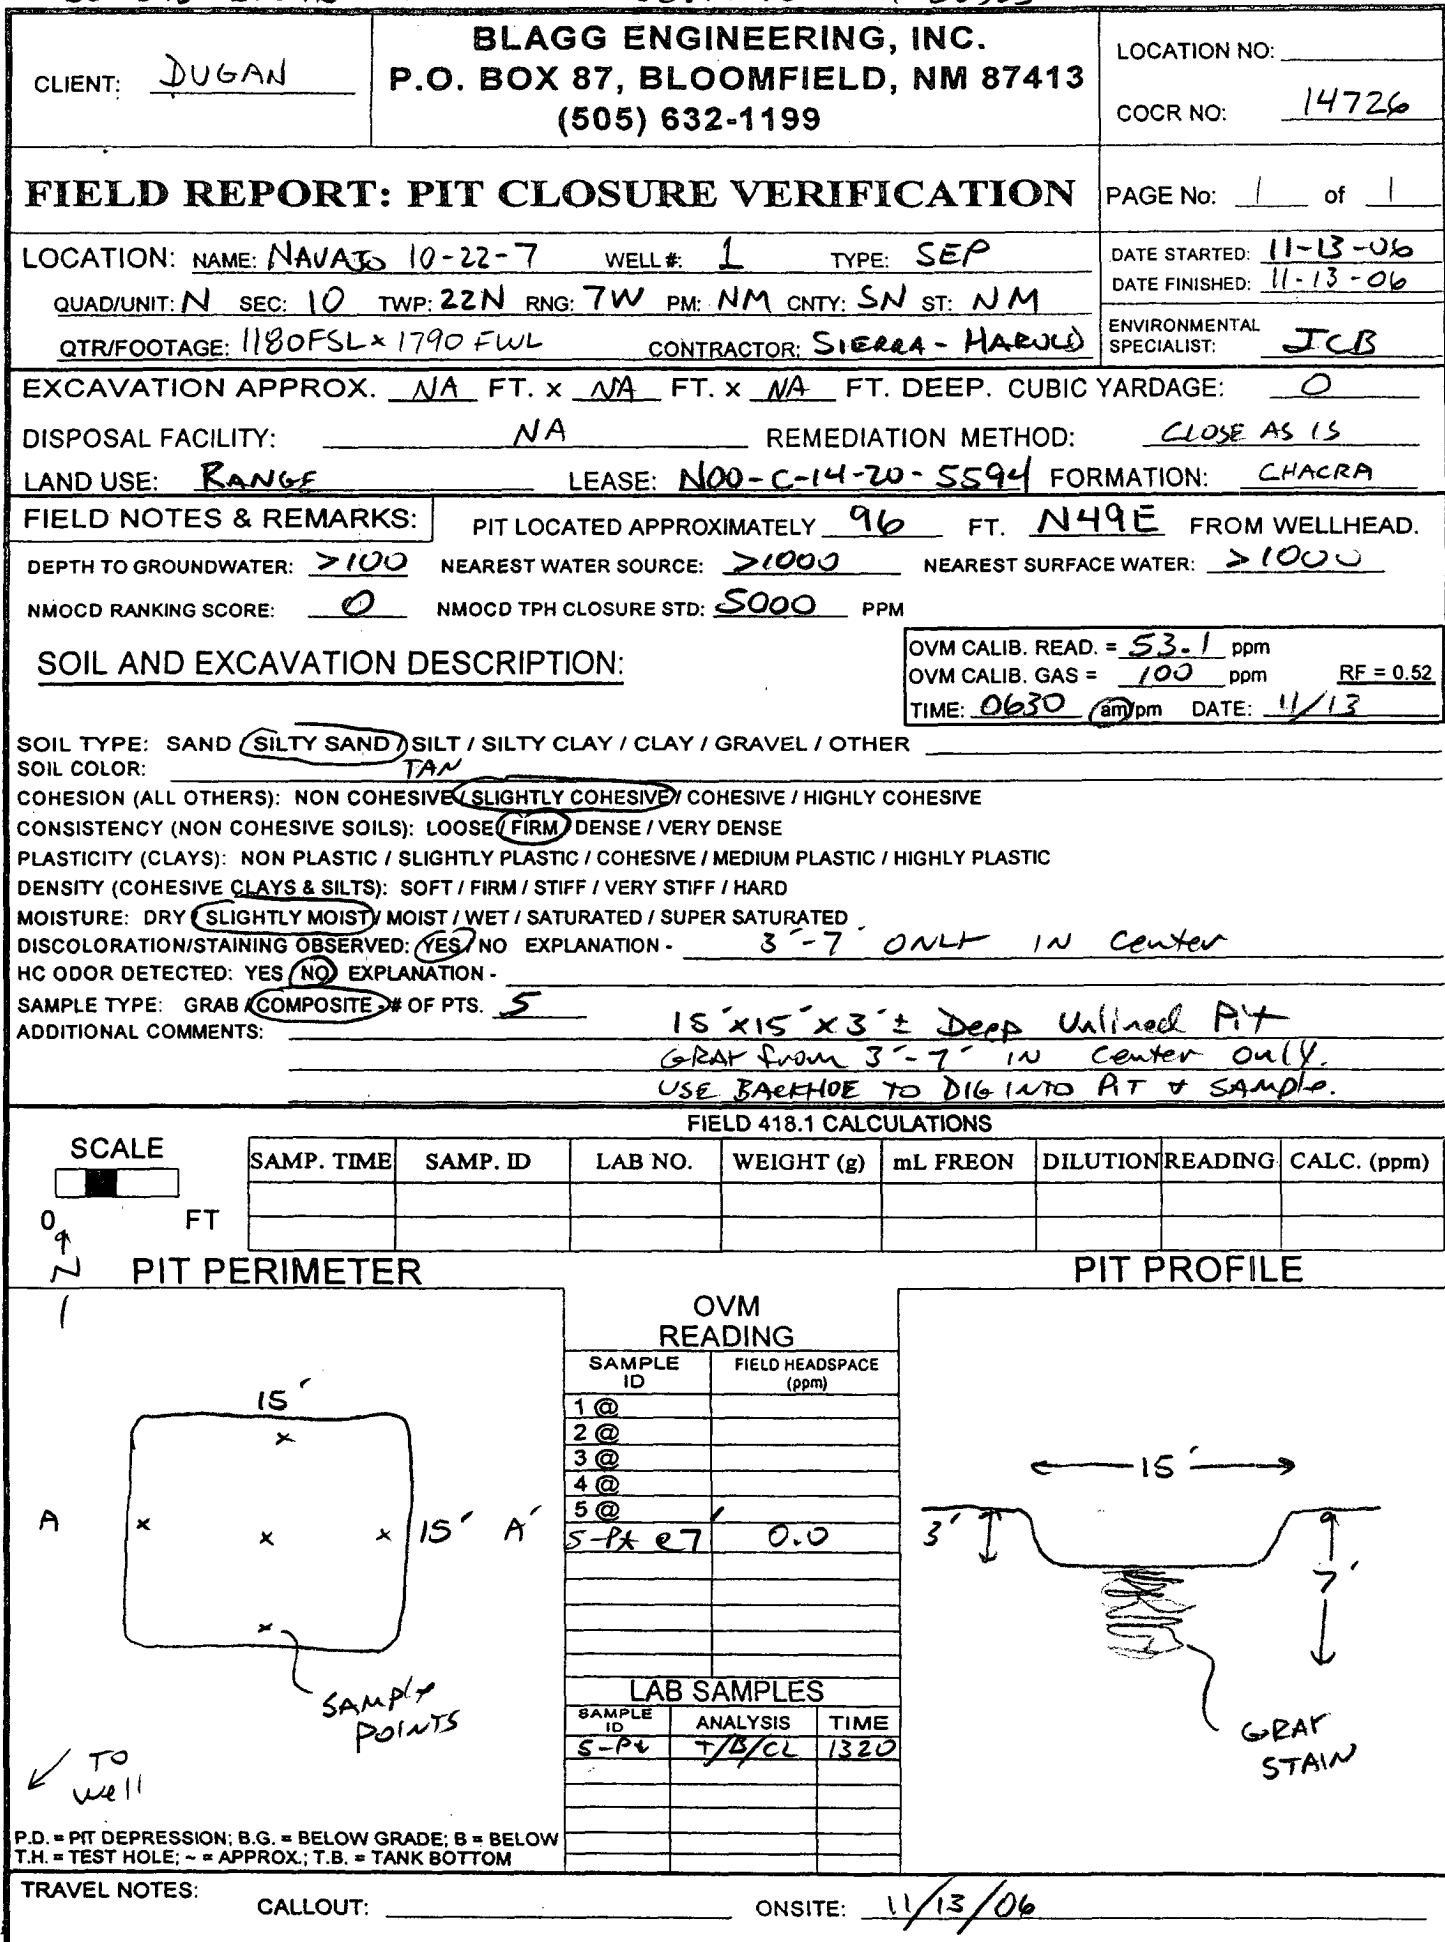 BLAGG ENGINEERING, INC.
CLIENT: DUGAN
P.O. BOX 87, BLOOMFIELD, NM 87413
(505) 632-1199
LOCATION NO:
COCR NO: 14726
FIELD REPORT: PIT CLOSURE VERIFICATION
PAGE No: 1 of 1
LOCATION: NAME: NAVAJO 10-22-7 WELL #: 1 TYPE: SEP
DATE STARTED: 11-13-06
DATE FINISHED: 11-13-06
QUAD/UNIT: N SEC: 10 TWP: 22N RNG: 7W PM: NM CNTY: SN ST: NM
QTR/FOOTAGE: 1180FSL x 1790 FWL CONTRACTOR: SIERRA - HAROLD
ENVIRONMENTAL
SPECIALIST: JCB
EXCAVATION APPROX. NA FT. x NA FT. x NA FT. DEEP. CUBIC YARDAGE: 0
DISPOSAL FACILITY: NA REMEDIATION METHOD: CLOSE AS IS
LAND USE: RANGE LEASE: N00-C-14-20-5594 FORMATION: CHACRA
FIELD NOTES & REMARKS: PIT LOCATED APPROXIMATELY 96 FT. N49E FROM WELLHEAD.
DEPTH TO GROUNDWATER: >100 NEAREST WATER SOURCE: >1000 NEAREST SURFACE WATER: >1000
NMOCD RANKING SCORE: 0 NMOCD TPH CLOSURE STD: 5000 PPM
SOIL AND EXCAVATION DESCRIPTION:
OVM CALIB. READ. = 53.1 ppm
OVM CALIB. GAS = 100 ppm RF = 0.52
TIME: 0630 am/pm DATE: 11/13
SOIL TYPE: SAND / SILTY SAND / SILT / SILTY CLAY / CLAY / GRAVEL / OTHER
SOIL COLOR: TAN
COHESION (ALL OTHERS): NON COHESIVE / SLIGHTLY COHESIVE / COHESIVE / HIGHLY COHESIVE
CONSISTENCY (NON COHESIVE SOILS): LOOSE / FIRM / DENSE / VERY DENSE
PLASTICITY (CLAYS): NON PLASTIC / SLIGHTLY PLASTIC / COHESIVE / MEDIUM PLASTIC / HIGHLY PLASTIC
DENSITY (COHESIVE CLAYS & SILTS): SOFT / FIRM / STIFF / VERY STIFF / HARD
MOISTURE: DRY / SLIGHTLY MOIST / MOIST / WET / SATURATED / SUPER SATURATED
DISCOLORATION/STAINING OBSERVED: YES / NO EXPLANATION - 3'-7' ONLY IN Center
HC ODOR DETECTED: YES / NO EXPLANATION -
SAMPLE TYPE: GRAB / COMPOSITE - # OF PTS. 5
ADDITIONAL COMMENTS: 15' x 15' x 3' ± Deep Unlined Pit
GRAY from 3'-7' IN Center Only.
USE BACKHOE TO DIG INTO PIT & SAMPLE.
FIELD 418.1 CALCULATIONS
SCALE
0 FT
SAMP. TIME SAMP. ID LAB NO. WEIGHT (g) mL FREON DILUTION READING CALC. (ppm)
N
PIT PERIMETER
PIT PROFILE
OVM
READING
SAMPLE ID FIELD HEADSPACE (ppm)
1 @
2 @
3 @
4 @
5 @
5-Pt @ 7' 0.0
15'
A 15' A'
SAMPLE
POINTS
TO
well
15'
3'
7'
GRAY
STAIN
LAB SAMPLES
SAMPLE ID ANALYSIS TIME
5-Pt T/B/CL 1320
P.D. = PIT DEPRESSION; B.G. = BELOW GRADE; B = BELOW
T.H. = TEST HOLE; ~ = APPROX.; T.B. = TANK BOTTOM
TRAVEL NOTES:
CALLOUT: ONSITE: 11/13/06